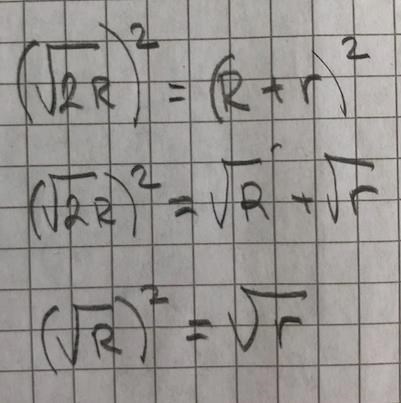 (√2R)² = (R + r)²
(√2R)² = √R + √r
(√R)² = √r